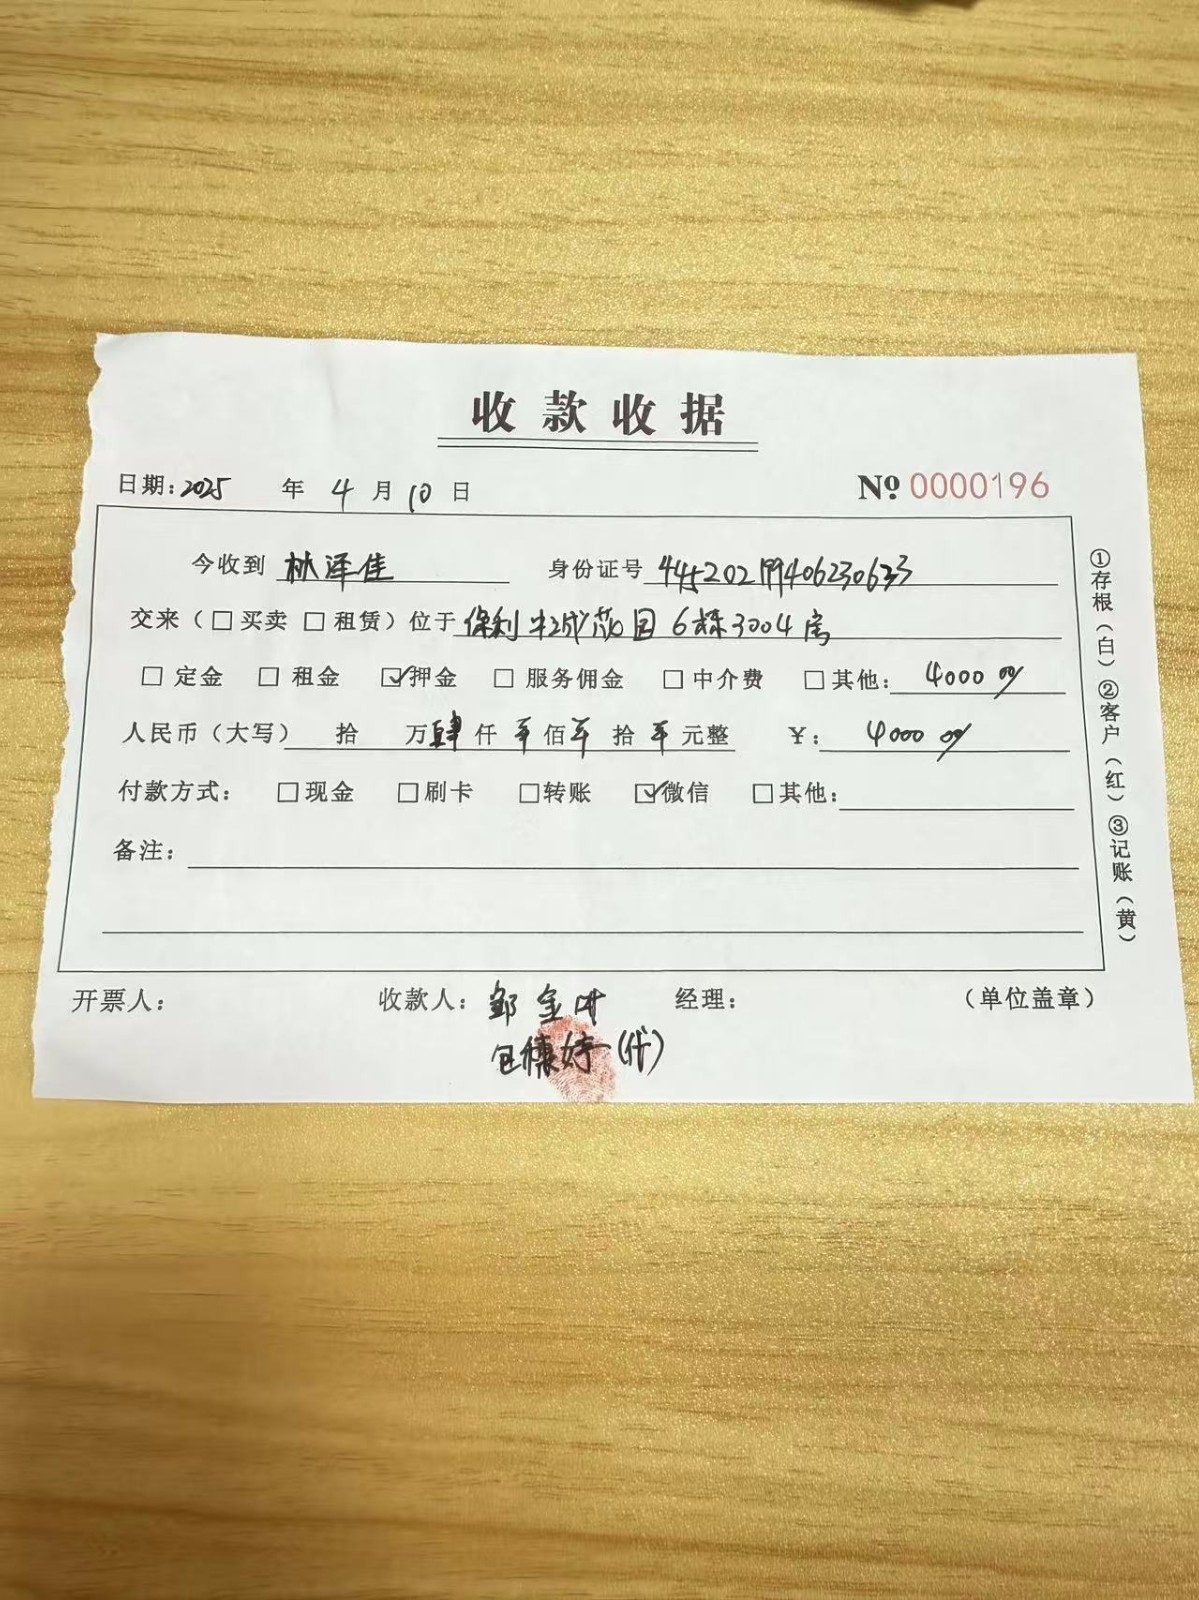 收款收据
日期:2025 年 4 月 10 日 Nº 0000196
今收到 林泽佳 身份证号 445202199406230633
交来（□买卖 □租赁）位于 保利 花园 6栋3004房
□ 定金 □ 租金 ☑押金 □ 服务佣金 □中介费 □其他: 4000
人民币（大写） 拾 万肆仟 零佰零拾零元整 ¥: 4000
付款方式: □现金 □刷卡 □转账 ☑微信 □其他:
备注:
开票人: 收款人: 邹金 经理: （单位盖章）
婷(代)
①存根（白）②客户（红）③记账（黄）